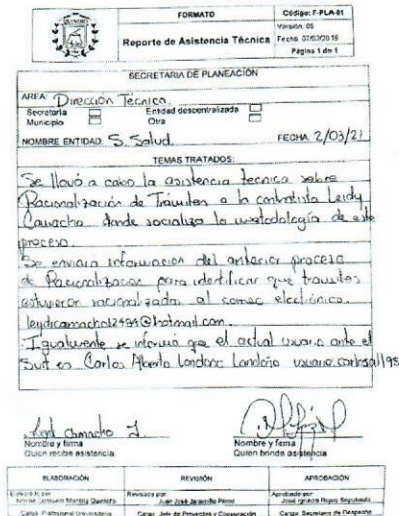 FORMATO
Código: F-PLA-01
Versión: 05
Reporte de Asistencia Técnica
Fecha 07/02/2019
Página 1 de 1
SECRETARIA DE PLANEACIÓN
AREA: Dirección Técnica.
Secretaria
Entidad descentralizada
Municipio
Otra
NOMBRE ENTIDAD S. Salud.
FECHA 2/03/21
TEMAS TRATADOS:
Se llevó a cabo la asistencia tecnica sobre
Racionalización de Tramites a la contratista Leidy
Camacho donde socializa la metodología de este
proceso.
Se enviara informacion del anterior proceso
de Racionalizacion para identificar que tramites
estuvieron racionalizados al correo electrónico.
leydicamacho12494@hotmail.com.
Igualmente se informó que el actual usuario ante el
Suit es Carlos Alberto Londoño Londoño usuario
Camacho
Nombre y firma
Quien recibe asistencia
Nombre y firma
Quien brinda asistencia
ELABORACIÓN
REVISIÓN
APROBACIÓN
Elaborado por
Revisado por
Aprobado por
Juan José Jaramillo Pérez
Cargo: Profesional Universitario
Cargo: Jefe de Proyectos y Cooperación
Cargo: Secretario de Despacho